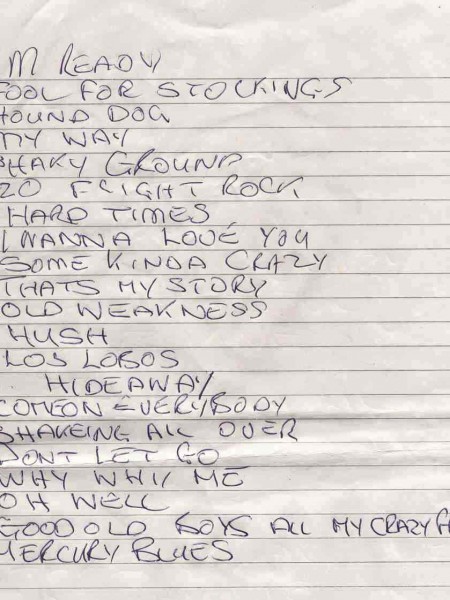 M READY
FOOL FOR STOCKINGS
HOUND DOG
MY WAY
SHAKY GROUND
20 FLIGHT ROCK
HARD TIMES
I WANNA LOVE YOU
SOME KINDA CRAZY
THATS MY STORY
OLD WEAKNESS
HUSH
LOS LOBOS
HIDEAWAY
COMEON EVERYBODY
SHAKEING ALL OVER
DONT LET GO
WHY ME
OH WELL
GOOD OLD BOYS ALL MY CRAZY
MERCURY BLUES